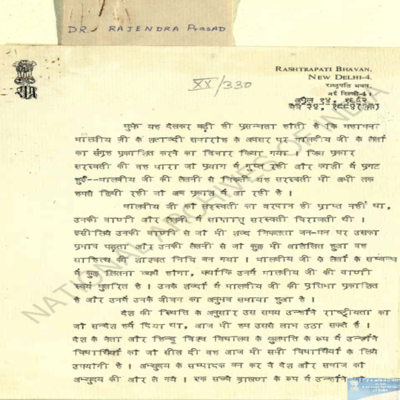 DR. RAJENDRA PRASAD
RASHTRAPATI BHAVAN,
NEW DELHI-4.
राष्ट्रपति भवन,
नई दिल्ली-4.
XX/330
मुझे यह देखकर बड़ी ही प्रसन्नता होती है कि महामना
मालवीय जी के शताब्दी समारोह के अवसर पर मालवीय जी के लेखों
का संग्रह प्रकाशित करने का विचार किया गया । जिस प्रकार
सरस्वती की वह धारा जो प्रयाग में गुप्त रही और काशी में प्रगट
हुई--मालवीय जी की लेखनी से निकली वह सरस्वती भी अभी तक
छिपी रही जो अब प्रकाश में आ रही है ।
मालवीय जी को सरस्वती का वरदान ही प्राप्त नहीं था,
उनकी वाणी और लेखनी में साक्षात् सरस्वती विराजती थी ।
इसीलिये उनकी वाणी से जो भी शब्द निकलता जन-मन पर उसका
प्रभाव पड़ता और उनकी लेखनी से जो कुछ भी आलेखित हुआ वह
साहित्य की शाश्वत निधि बन गया । मालवीय जी के लेखों के सम्बन्ध
में कुछ लिखना व्यर्थ होगा, क्योंकि उनमें मालवीय जी की वाणी
स्वयं मुखरित है । उनके शब्दों में मालवीय जी की प्रतिभा प्रकाशित
है और उनमें उनके जीवन का अनुभव समाया हुआ है ।
देश की स्थिति के अनुसार उस समय उन्होंने राष्ट्रीयता का
जो सन्देश हमें दिया था, आज भी हम उससे लाभ उठा सकते हैं ।
देश के नेता और हिन्दू विश्व विद्यालय के कुलपति के रूप में उन्होंने
विद्यार्थियों को जो सीख दी वह आज भी सभी विद्यार्थियों के लिये
उपयोगी है । अभ्युदय के सम्पादक बन कर वे देश और समाज को
अभ्युदय की ओर ले गये । एक सच्चे ब्राह्मण के रूप में उन्होंने
NATIONAL ARCHIVES OF INDIA